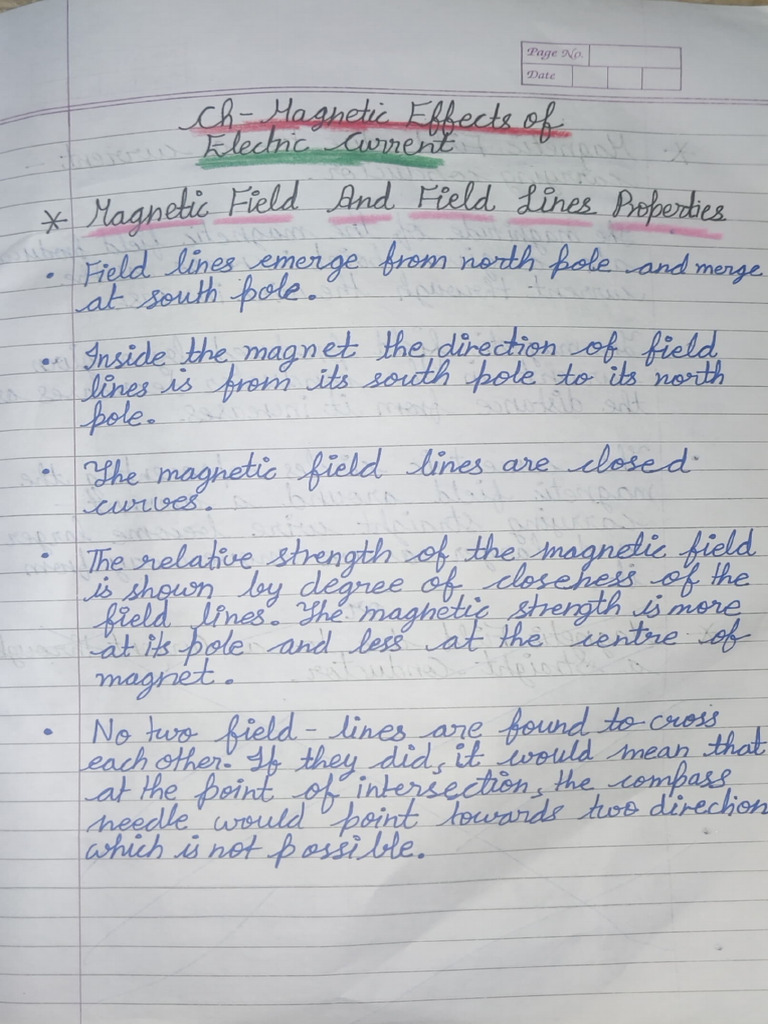 Page No.
Date
Ch- Magnetic Effects of
Electric Current
* Magnetic Field And Field Lines Properties
• Field lines emerge from north pole and merge
at south pole.
• Inside the magnet the direction of field
lines is from its south pole to its north
pole.
• The magnetic field lines are closed
curves.
• The relative strength of the magnetic field
is shown by degree of closeness of the
field lines. The magnetic strength is more
at its pole and less at the centre of
magnet.
• No two field-lines are found to cross
each other. If they did, it would mean that
at the point of intersection, the compass
needle would point towards two direction
which is not possible.